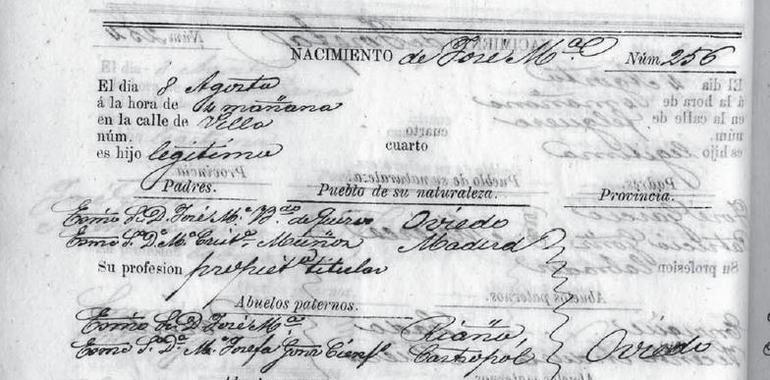 NACIMIENTO de José Mª Núm. 256
El dia 8 Agosto
á la hora de 4 mañana
en la calle de Villa
núm. cuarto
es hijo legitimo
Padres. Pueblo de su naturaleza. Provincia.
Exmo Sr. D. José Mª B.do de Quiros Oviedo
Exma Sª Dª Mª Crist.na Muñoz Madrid
Su profesion propiet.º titular
Abuelos paternos.
Exmo Sr. D. José Mª Riaño,
Exma Sª Dª Mª Josefa Gonz Cienf.s Castropol Oviedo